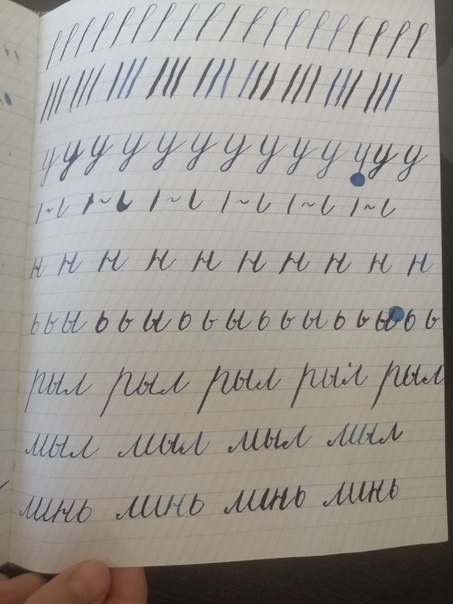 у у у у у у у у у у у у у
н н н н н н н н н н
ь ь ы ь ь ы ь ь ы ь ь ы ь ь ы ь ь
рыл рыл рыл рыл рыл
мыл мыл мыл мыл
линь линь линь линь